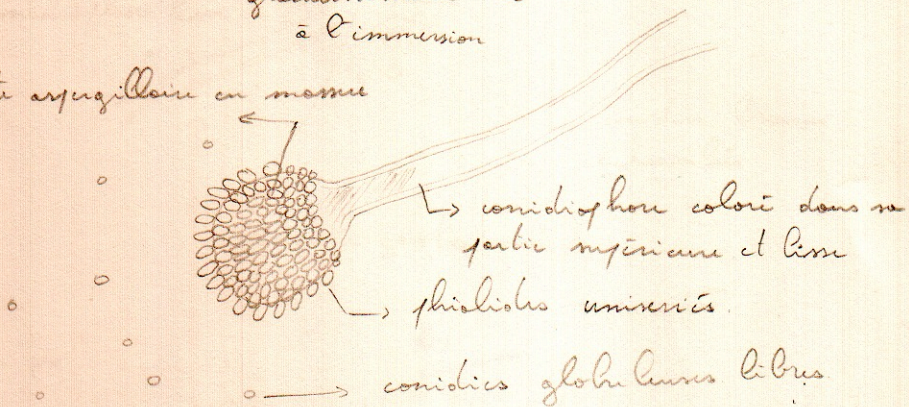 à l'immersion
aspergillaire en massue
conidiophore coloré dans sa
partie supérieure et lisse
phialides uniseriés.
conidies globuleuses libres